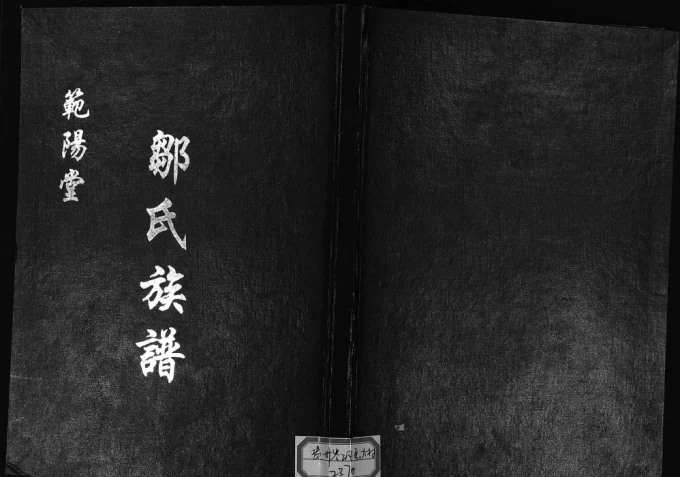 鄒氏族譜
範陽堂